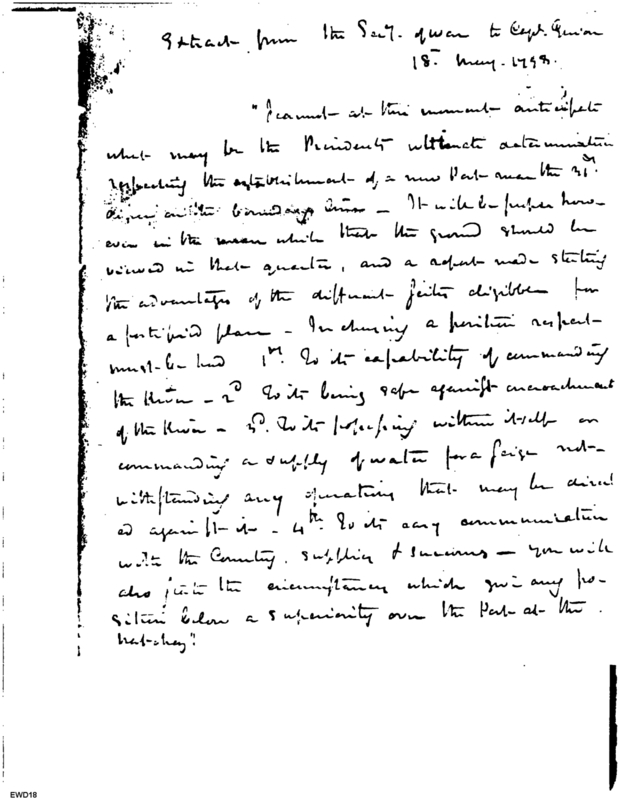 Extract from the Secy. of war to Capt. Guion
18th May. 1798.
"I cannot at this moment anticipate
what may be the Presidents ultimate determination
respecting the establishment of a new Post near the 31st
degree on the boundary line – It will be proper how-
ever in the mean while that the ground should be
viewed in that quarter, and a report made stating
the advantages of the different scites eligible for
a fortified place – In chusing a position respect
must be had 1st. To its capability of commanding
the River – 2d To its being safe against encroachment
of the River – 3d. To its possessing within itself or
commanding a supply of water for a seige not-
withstanding any operations that may be direct
ed against it – 4th. To its easy communication
with the Country, supplies & succours – You will
also state the circumstances which give any po-
sition below a superiority over the Post at the
Natchez"
EWD18